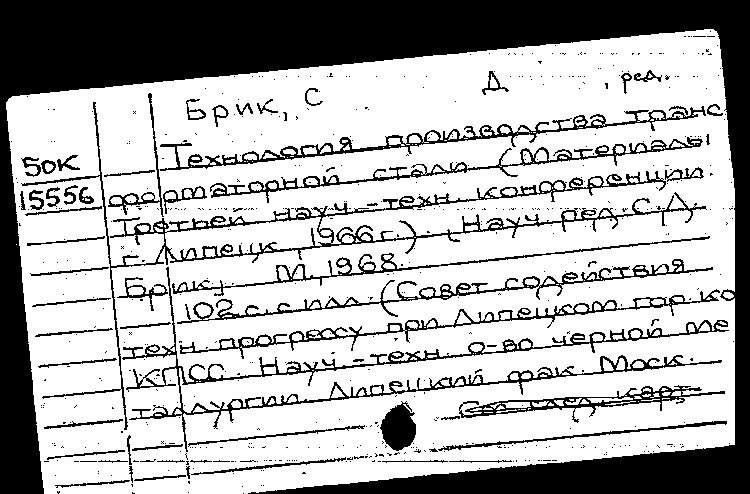 Брик, С Д , ред.
Технология производства транс
50К
15556
форматорной стали (Материалы
Третьей науч.-техн. конференции.
г. Липецк, 1966 г.). (Науч. ред. С.Д.
Брик). М., 1968.
102 с. с илл. (Совет содействия
техн. прогрессу при Липецком гор. ко
КПСС. Науч.-техн. о-во черной ме
таллургии. Липецкий фак. Моск.
См. след. карт.